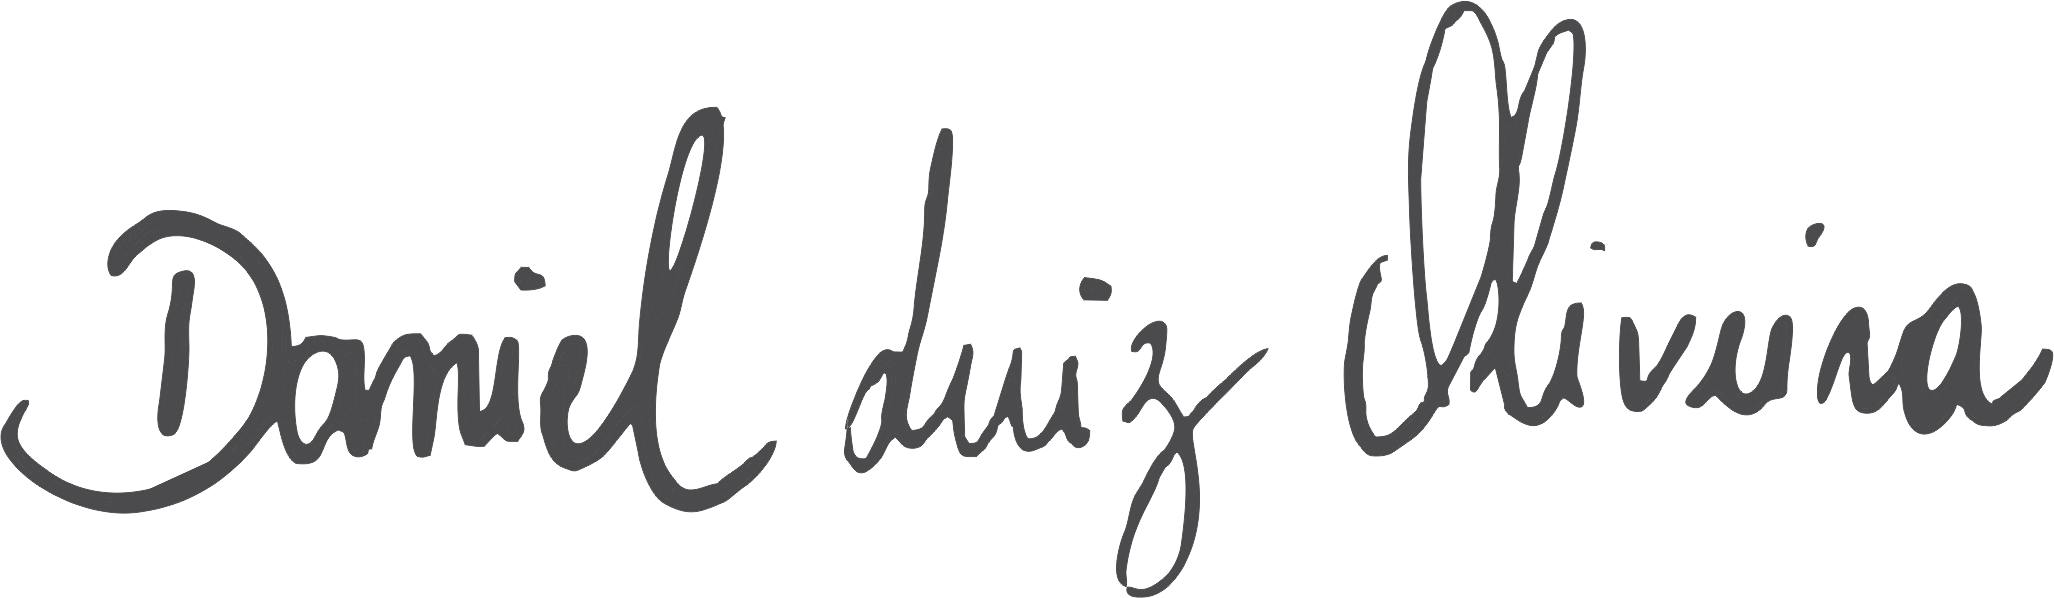 Daniel Luiz Oliveira